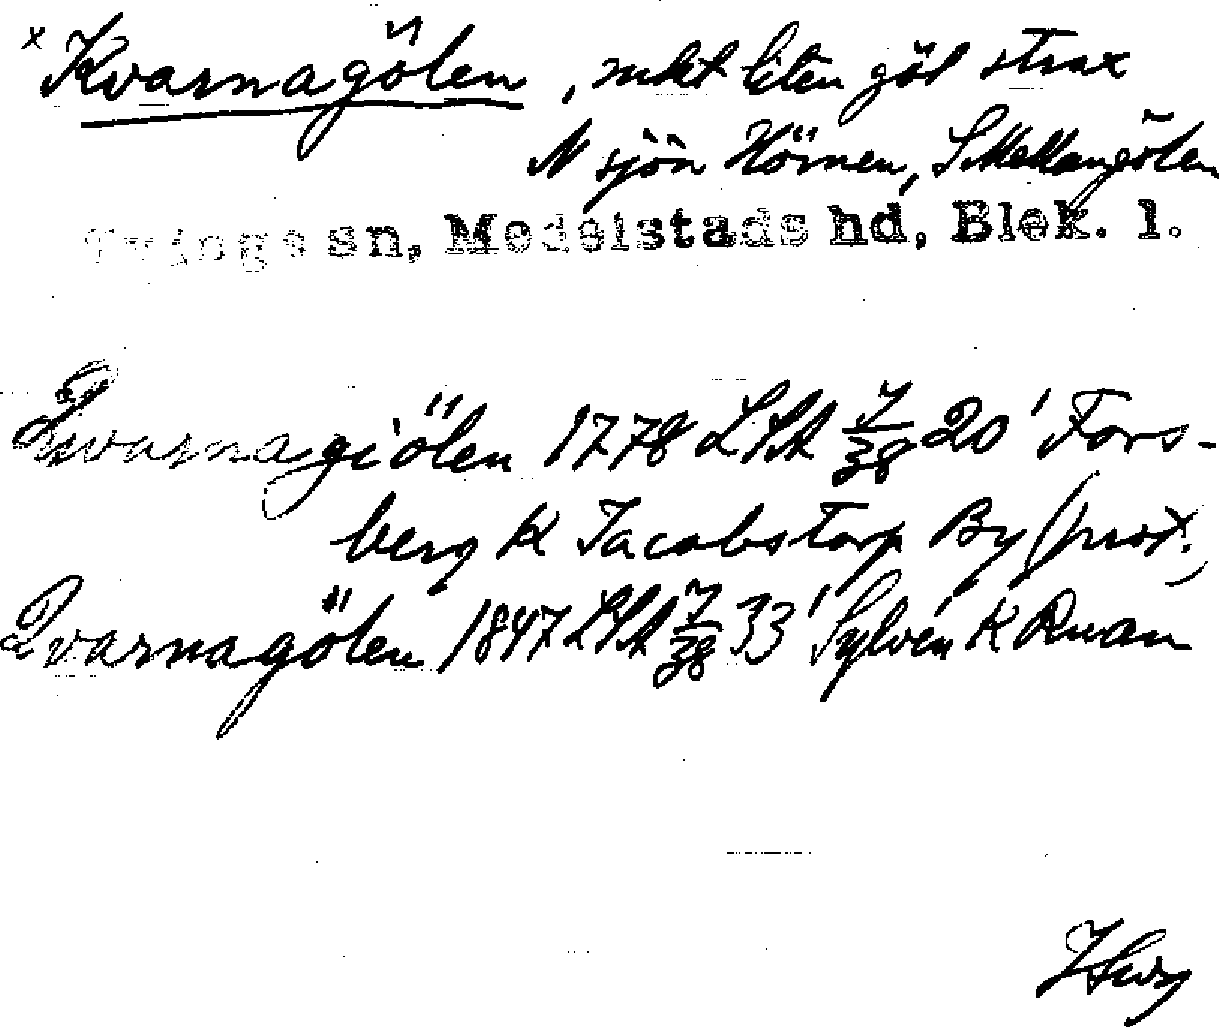 x Kvarnagölen, mkt liten göl strax
N sjön Hörnen, S Mellangölen
Tvings sn, Medelstads hd, Blek. l.
Qvarnagiölen 1778 LSA 7/38 20' Fors-
berg K Jacobstorp By (prot.)
Qvarnagölen 1847 LSA 7/38 33' Sylvén K Ruan